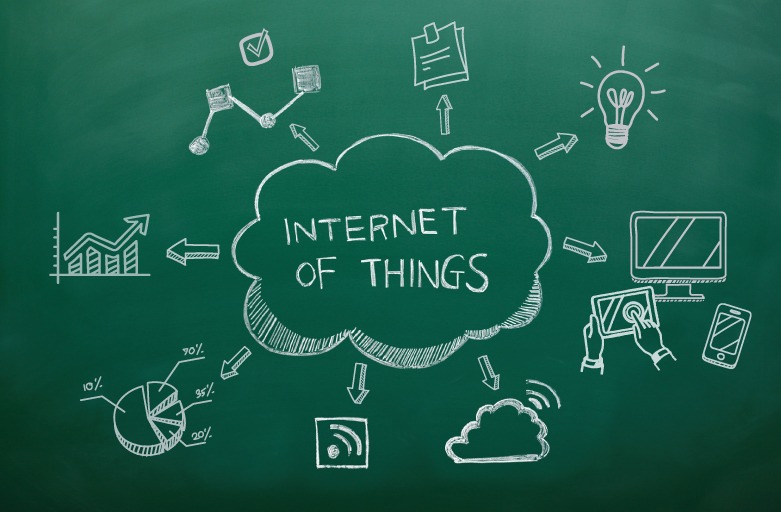 INTERNET
OF THINGS
90%
10%
35%
20%